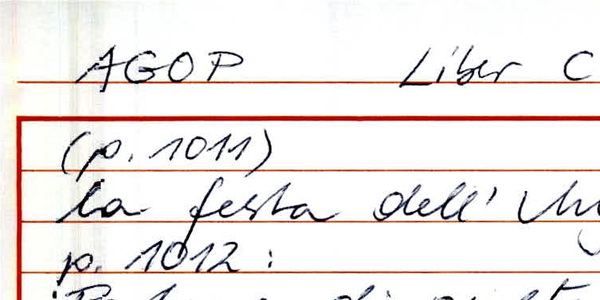 AGOP Liber C
(p. 1011)
la festa dell'
p. 1012: